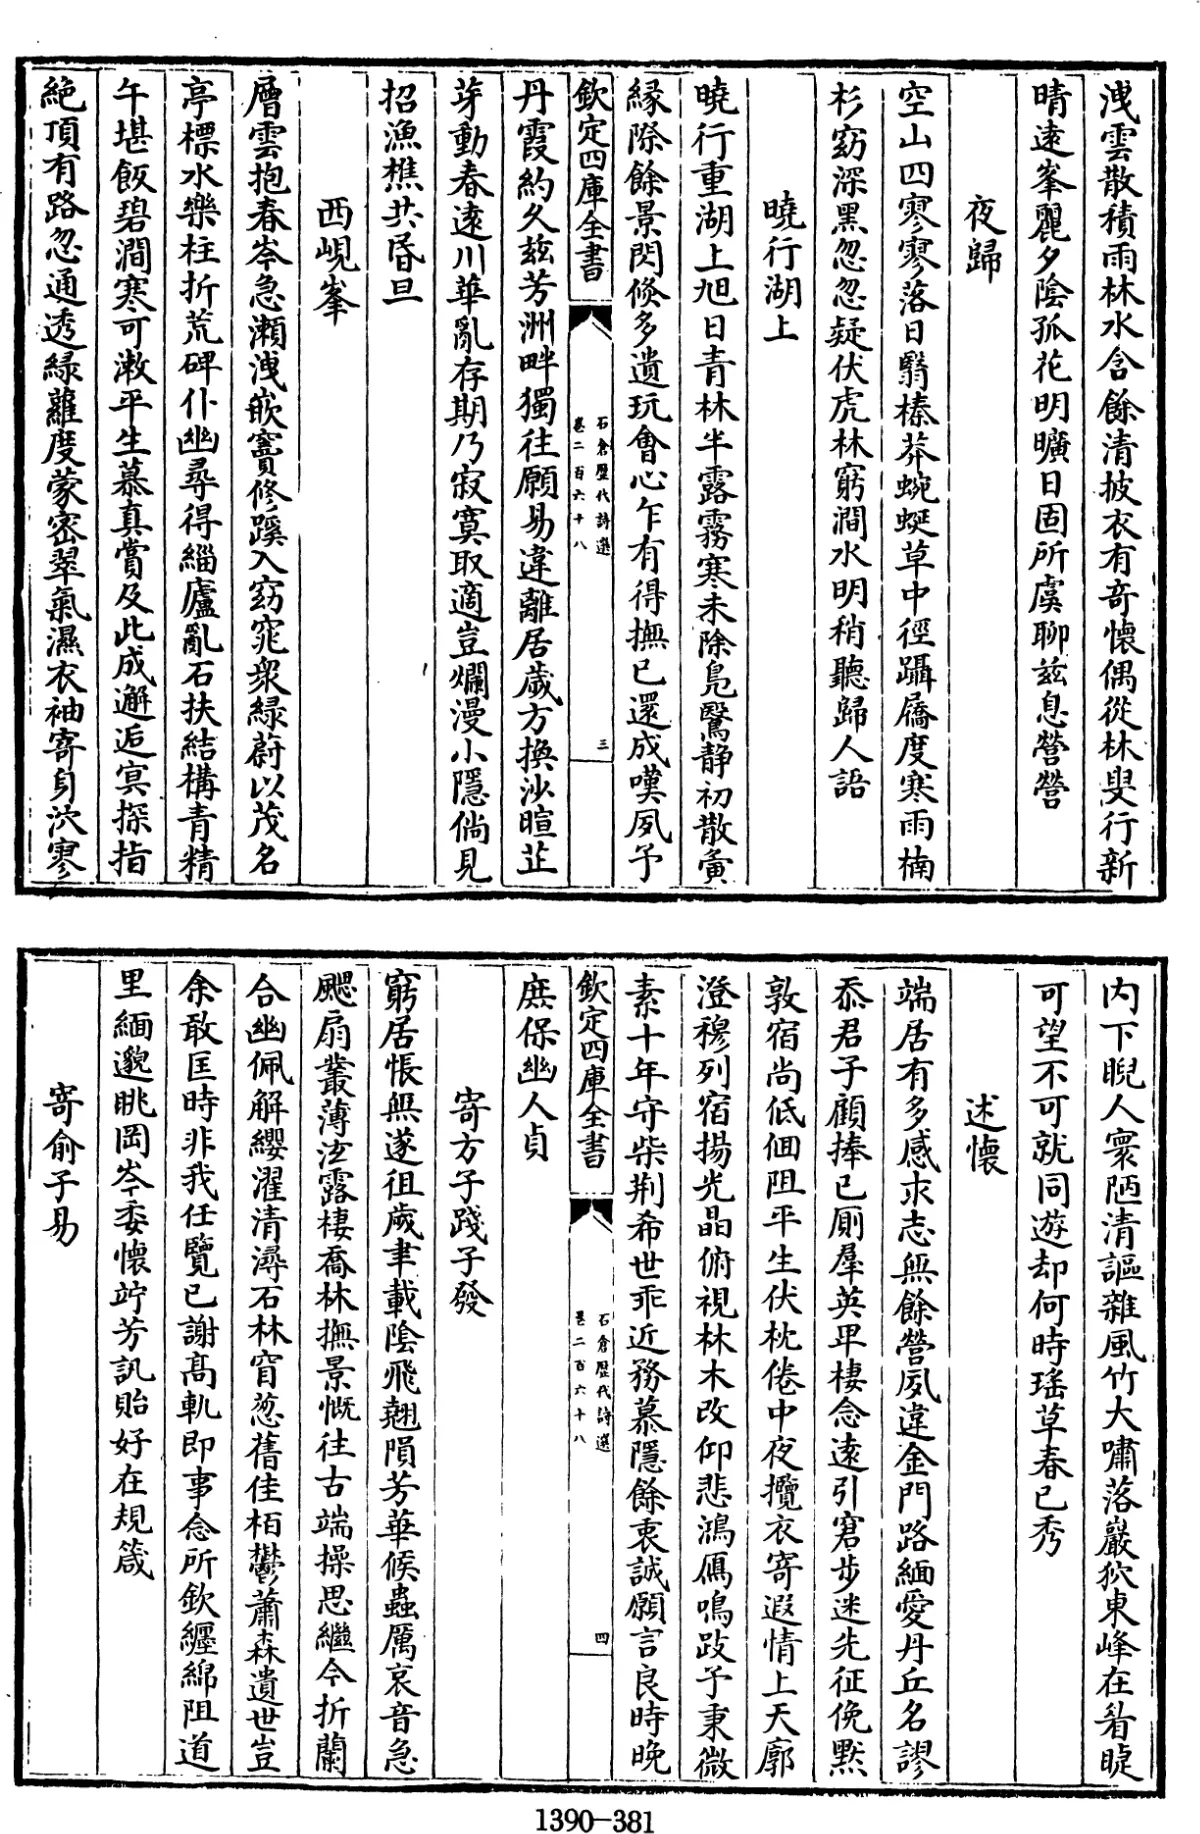 洩雲散積雨林水含餘清披衣有奇懷偶從林叟行新
晴遠峯麗夕陰孤花明曠日固所虞聊玆息營營
夜歸
空山四寥寥落日翳榛莽蜿蜒草中徑躡屩度寒雨楠
杉窈深黑忽忽疑伏虎林窮澗水明稍聽歸人語
曉行湖上
曉行重湖上旭日青林半露霧寒未除鳧鷖静初散夤
緣際餘景閃倐多遺玩會心乍有得撫已還成嘆夙予
欽定四庫全書
石倉歷代詩選
卷二百六十八
三
丹霞約久玆芳洲畔獨往願易違離居歲方換沙暄芷
芽動春遠川華亂存期乃寂寞取適豈爛漫小隱倘見
招漁樵共昏旦
西峴峯
層雲抱春岑急瀬洩嵌竇修蹊入窈窕衆緑蔚以茂名
亭標水樂柱折荒碑仆幽尋得緇廬亂石扶結構青精
午堪飯碧澗寒可漱平生慕真賞及此成邂逅冥探指
絶頂有路忽通透緑蘿度蒙密翠氣濕衣袖寄身泬寥
内下睨人寰陋清謳雜風竹大嘯落巖狖東峰在眷睫
可望不可就同遊却何時瑤草春已秀
述懷
端居有多感求志無餘營夙違金門路緬愛丹丘名謬
忝君子顧捧已厠羣英卑棲念遠引窘步迷先征俛默
敦宿尚低佪阻平生伏枕倦中夜攬衣寄遐情上天廓
澄穆列宿揚光晶俯視林木改仰悲鴻鴈鳴跂予秉微
素十年守柴荆希世乖近務慕隱餘衷誠願言良時晚
欽定四庫全書
石倉歷代詩選
卷二百六十八
四
庶保幽人貞
寄方子踐子發
窮居悵無遂徂歲聿載陰飛翹隕芳華候蟲厲哀音急
颸扇叢薄泫露棲喬林撫景慨往古端操思繼今折蘭
合幽佩解纓濯清潯石林窅葱蒨佳栢鬱蕭森遺世豈
余敢匡時非我任覽已謝高軌即事念所欽纒綿阻道
里緬邈眺岡岑委懷竚芳訊貽好在規箴
寄俞子易
1390-381